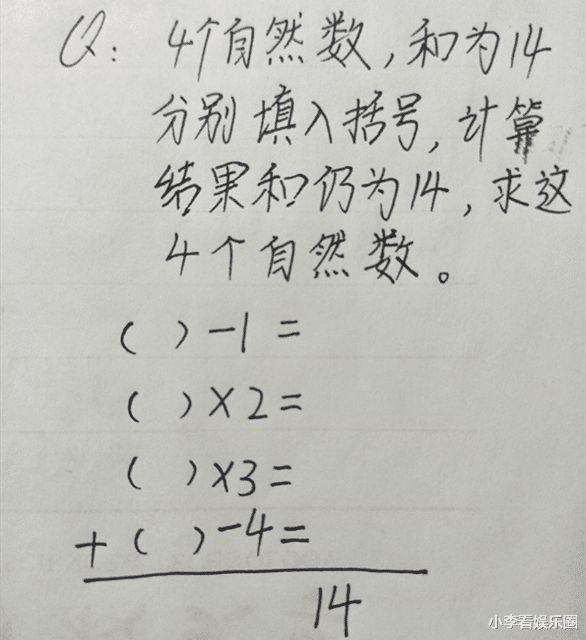 Q: 4个自然数,和为14
分别填入括号,计算
结果和仍为14,求这
4个自然数。
( )-1=
( )×2=
( )×3=
+( )-4=
14
小李看娱乐圈